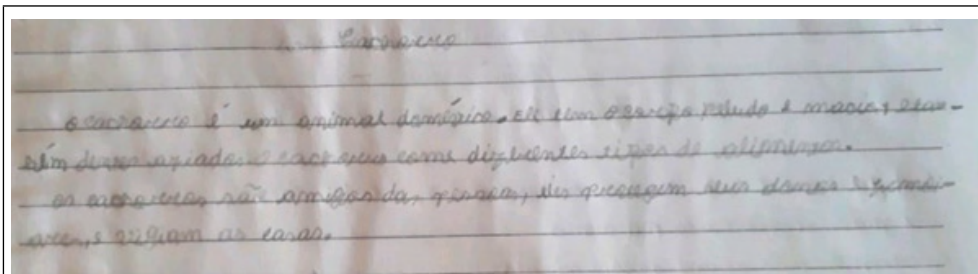 Cachorro
o cachorro é um animal doméstico. ele tem o corpo peludo e macio, e tam-
bém dentes afiados o cachorro come diferentes tipos de alimentos.
os cachorros são amigos das pessoas, eles protegem seus donos e
e vigiam as casas.